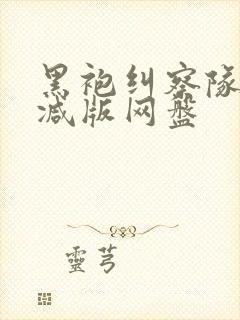 黑袍纠察队
减版网盘
靈芎